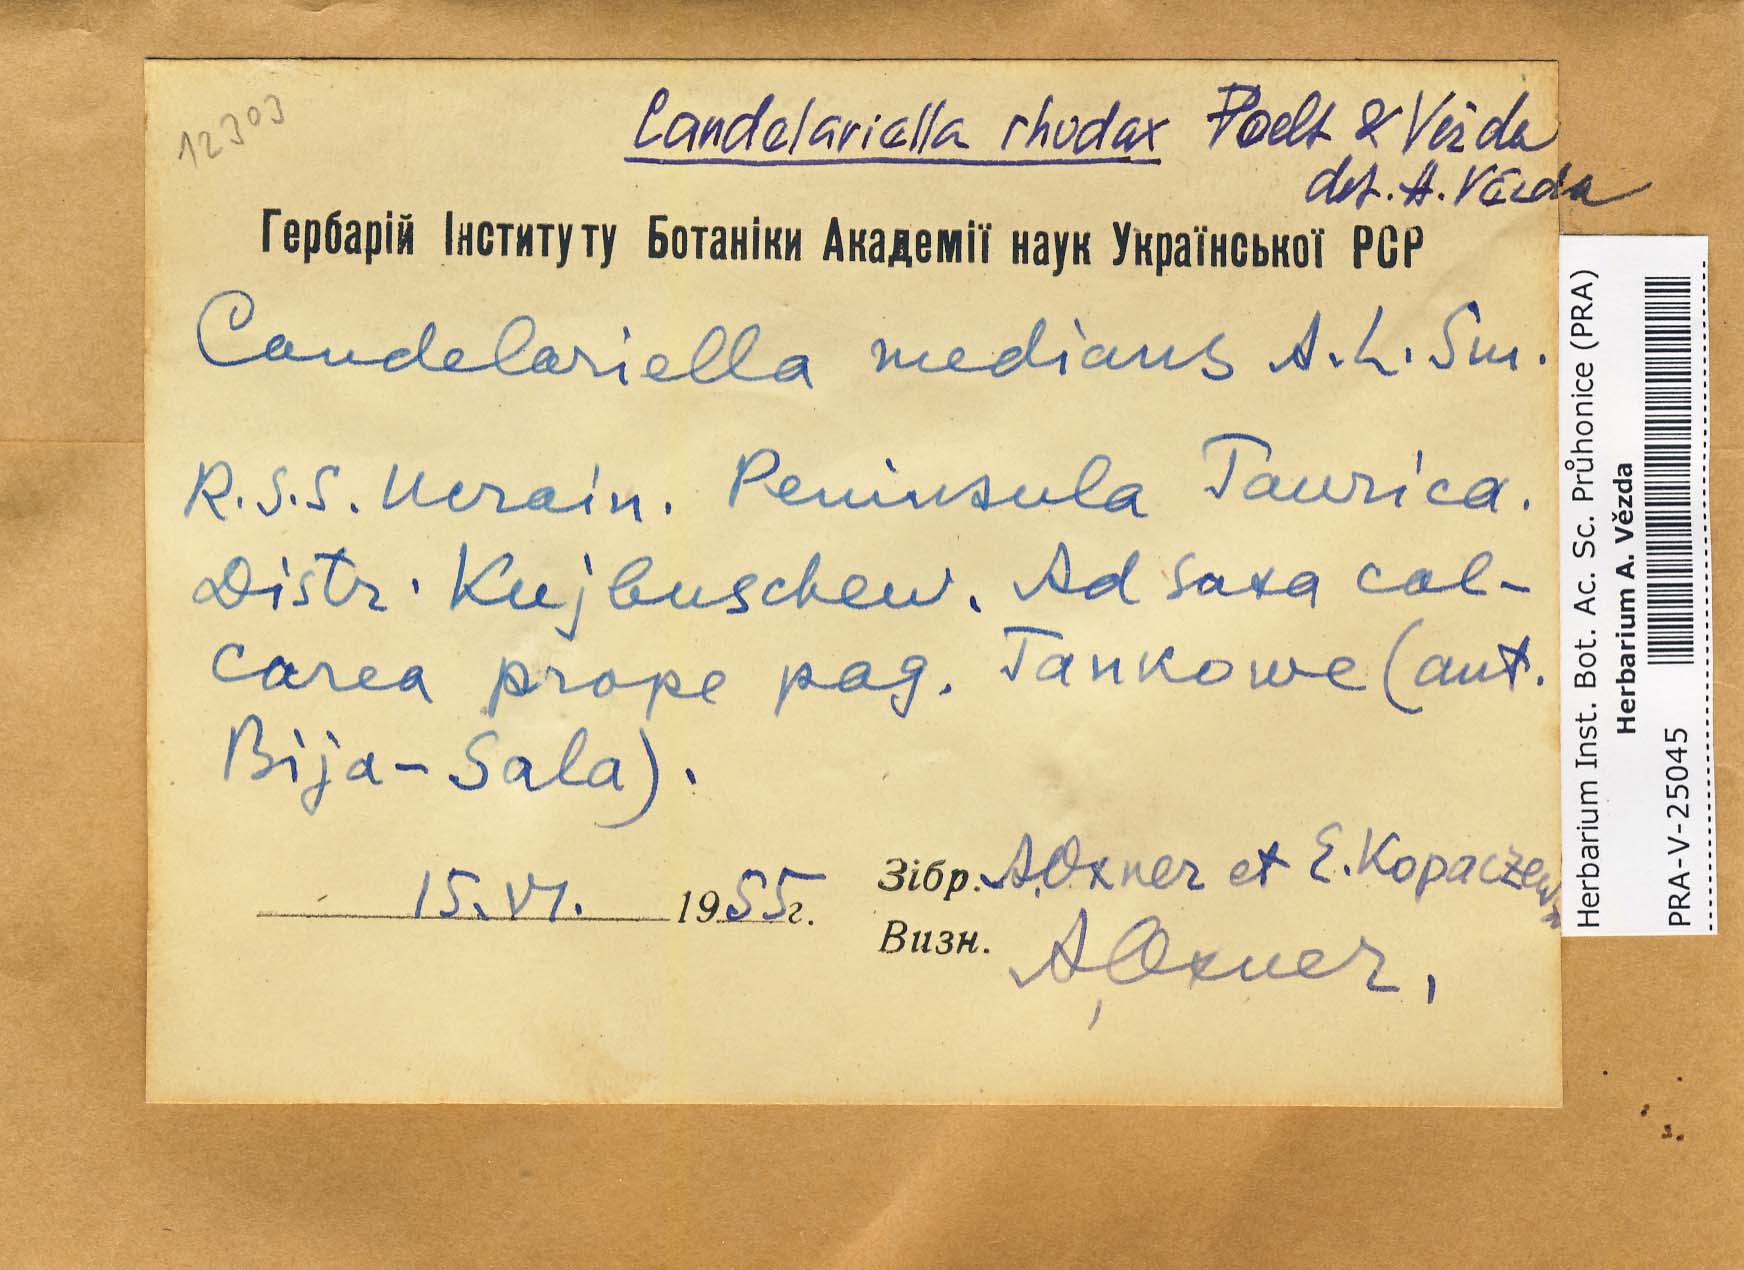 12303
Candelariella rhodax Poelt & Vězda
det. A. Vězda
Гербарій Інституту Ботаніки Академії наук Української РСР
Candelariella medians A.L.Sm.
R.S.S. Ucrain. Peninsula Taurica.
Distr. Kujbuschew. Ad saxa cal-
carea prope pag. Tankowe (ant.
Bija-Sala).
15.VI. 1955г.
Зібр. A.Oxner et E.Kopaczew
Визн. A.Oxner.
Herbarium Inst. Bot. Ac. Sc. Průhonice (PRA)
Herbarium A. Vězda
PRA-V-25045